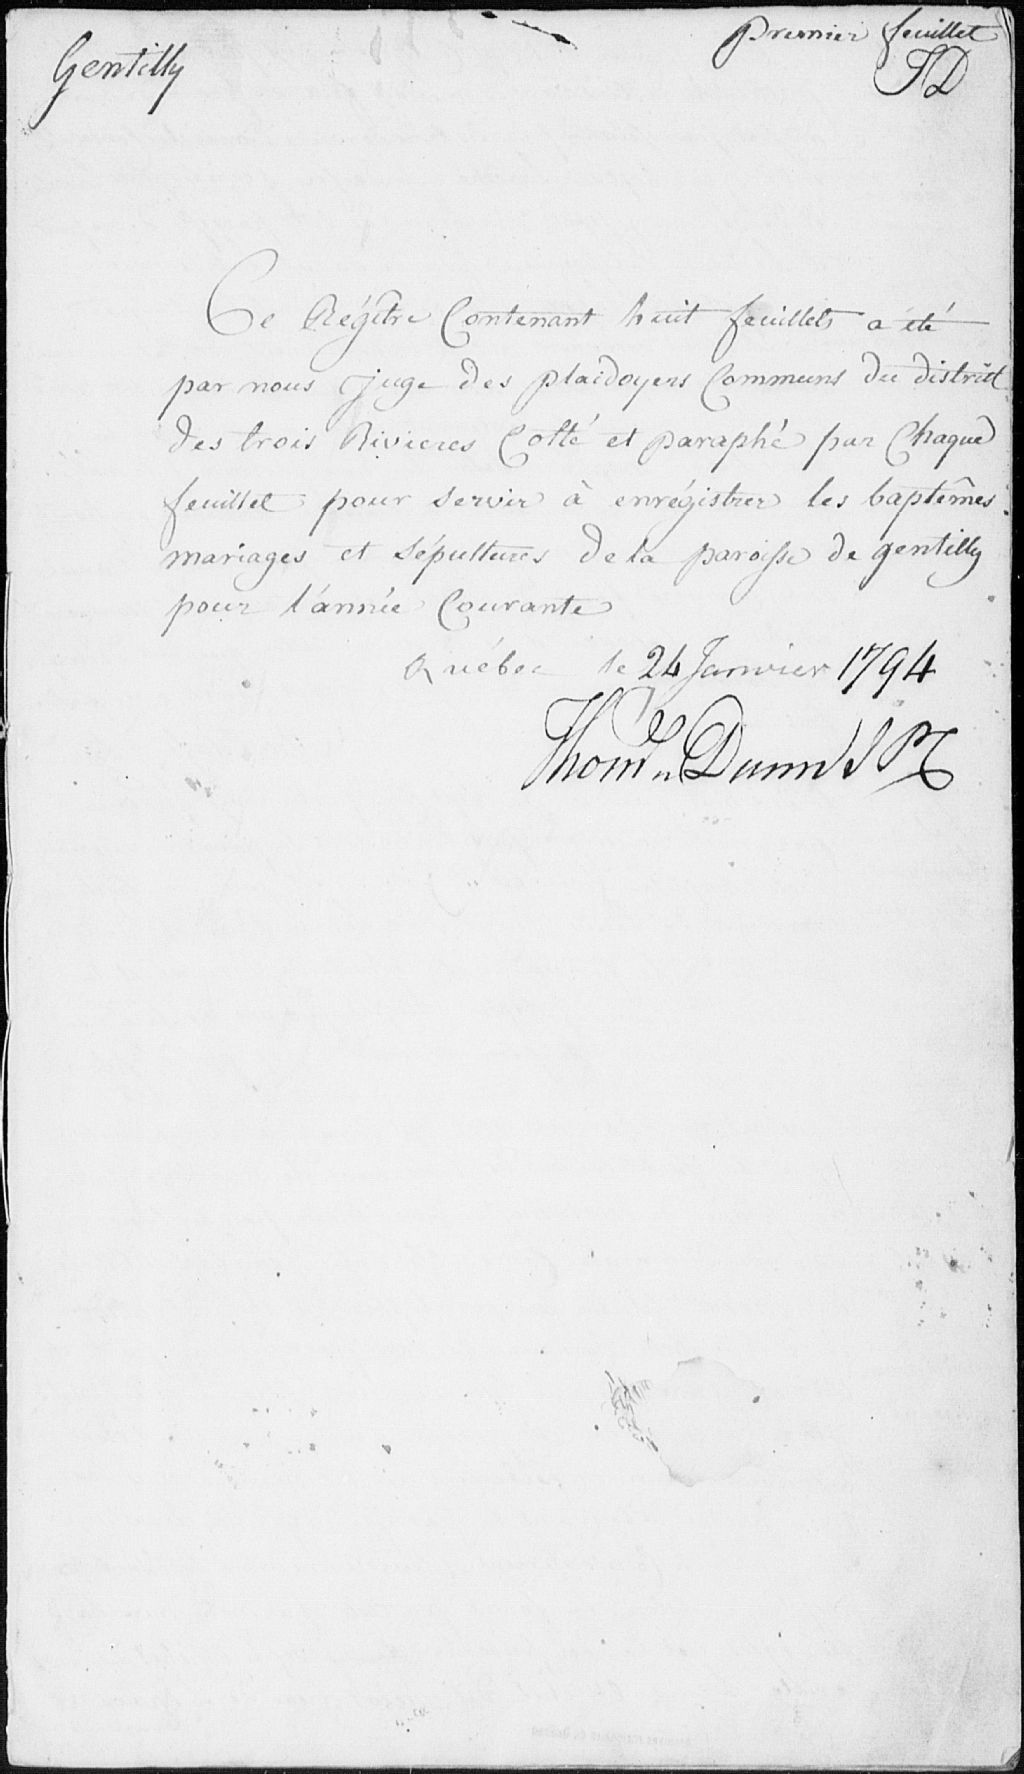 Gentilly
premier feuillet
TD
Ce Régître Contenant huit feuillets a été
par nous juge des plaidoyers Communs du district
des trois Rivieres Cotté et paraphé par Chaque
feuillet pour servir à enrégistrer les baptêmes
mariages et sépultures de la paroisse de gentilly
pour l'année Courante
Québec le 24 Janvier 1794
Thom Dunn